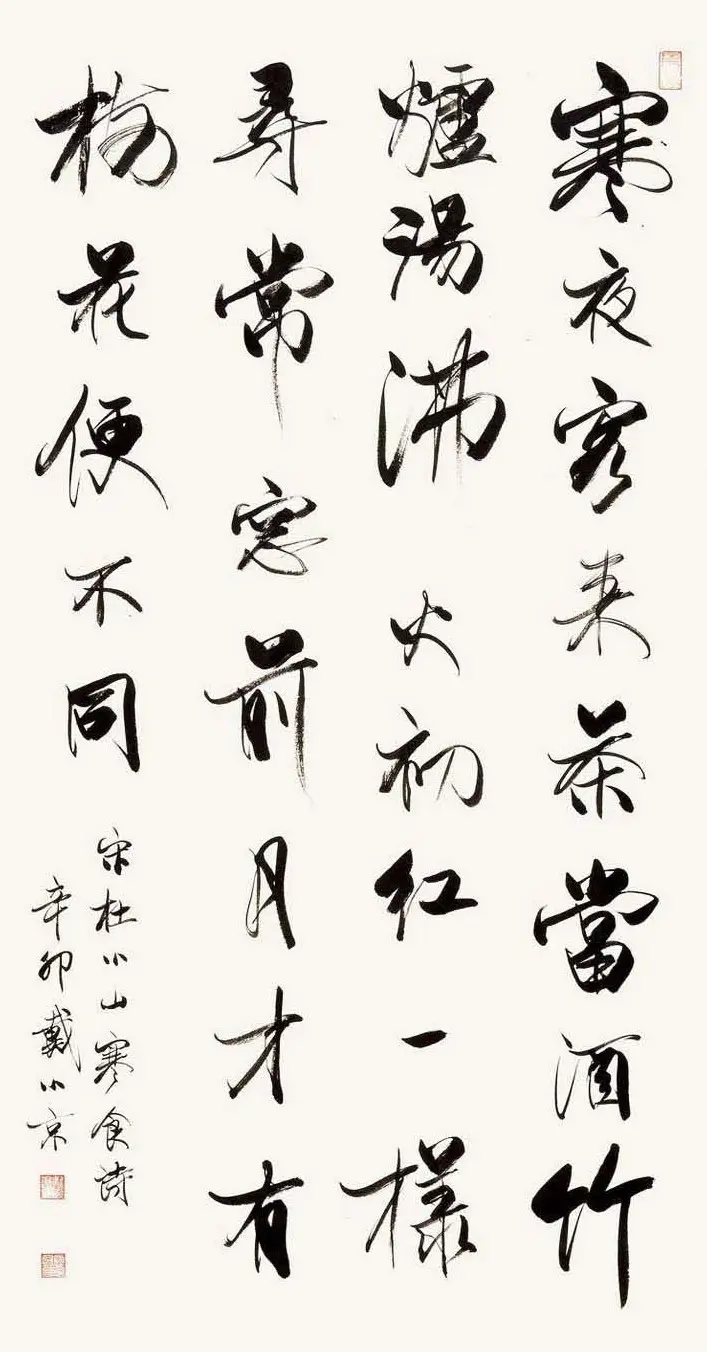 寒夜客来茶當酒竹
爐湯沸火初紅一樣
尋常窓前月才有
梅花便不同
宋杜小山寒食诗
辛卯戴小京